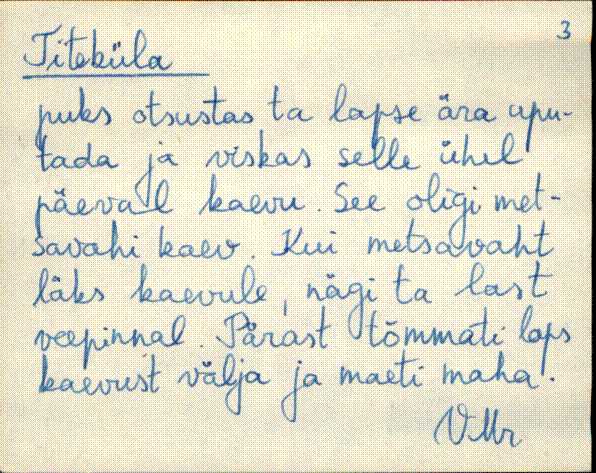 3
Titeküla
puks otsustas ta lapse ära upu-
tada ja viskas selle ühel
päeval kaevu. See oligi met-
savahi kaev. Kui metsavaht
läks kaevule, nägi ta last
veepinnal. Pärast tõmmati laps
kaevust välja ja maeti maha.
VMr